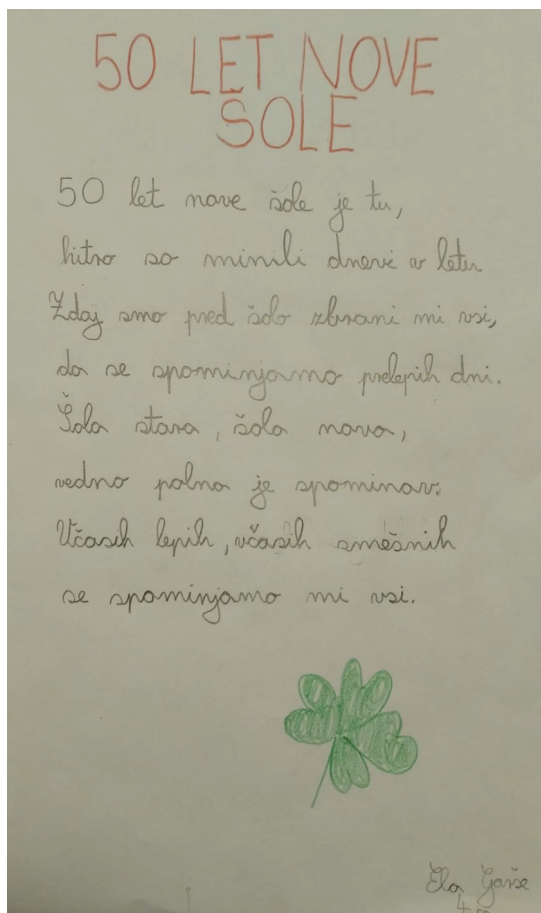 50 LET NOVE
ŠOLE
50 let nove šole je tu,
hitro so minili dnevi v letu
Zdaj smo pred šolo zbrani mi vsi,
da se spominjamo prelepih dni.
Šola stara, šola nova,
vedno polna je spominov.
Včasih lepih, včasih smešnih
se spominjamo mi vsi.
Ela